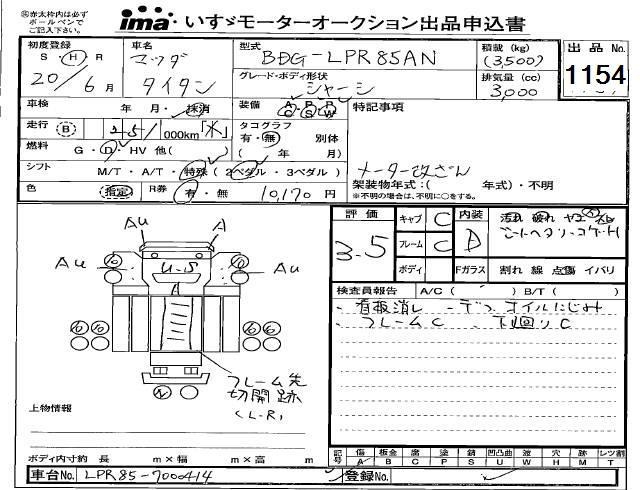 ㊟赤太枠内は必ず
ボールペンで
ご記入下さい。
ima いすゞモーターオークション出品申込書
初度登録 車名 型式 積載 (kg) 出品 No.
S・H・R マツダ BDG-LPR85AN (3,500) 1154
20/6月 タイタン グレード・ボディ形状 シャーシ 排気量 (cc) 3,000
車検 年 月・抹消 装備 A/C P/S P/W 特記事項
走行 B 251 000km「*」 タコグラフ 有・無 別体
燃料 G・D・HV 他( ) ( 年 月) メーター改ざん
シフト M/T・A/T・特殊(2ペダル・3ペダル) 架装物年式:( 年式)・不明
※不明の場合は、年式不明に○をする。
色 指定 R券 有・無 10,170円
評価 3.5 キャブ C 内装 D 汚れ 破れ ヤニ
フレーム C シートヘタリ・コゲ
ボディ Fガラス 割れ 線 点傷 イバリ
検査員報告 A/C ( ) B/T ( )
・看板消し ・デフ オイルにじみ
・フレームC 、下回りC
Au A
Au Au
U-S
A
フレーム先
切開跡
(L-R)
上物情報
ボディ内寸約 長 m×幅 m×高 m
記号 傷 板金 腐 塗 錆 凹凸曲 波 穴 跡 レツ割
A B C P S U W H M T
車台No. LPR85-7000414 登録No.